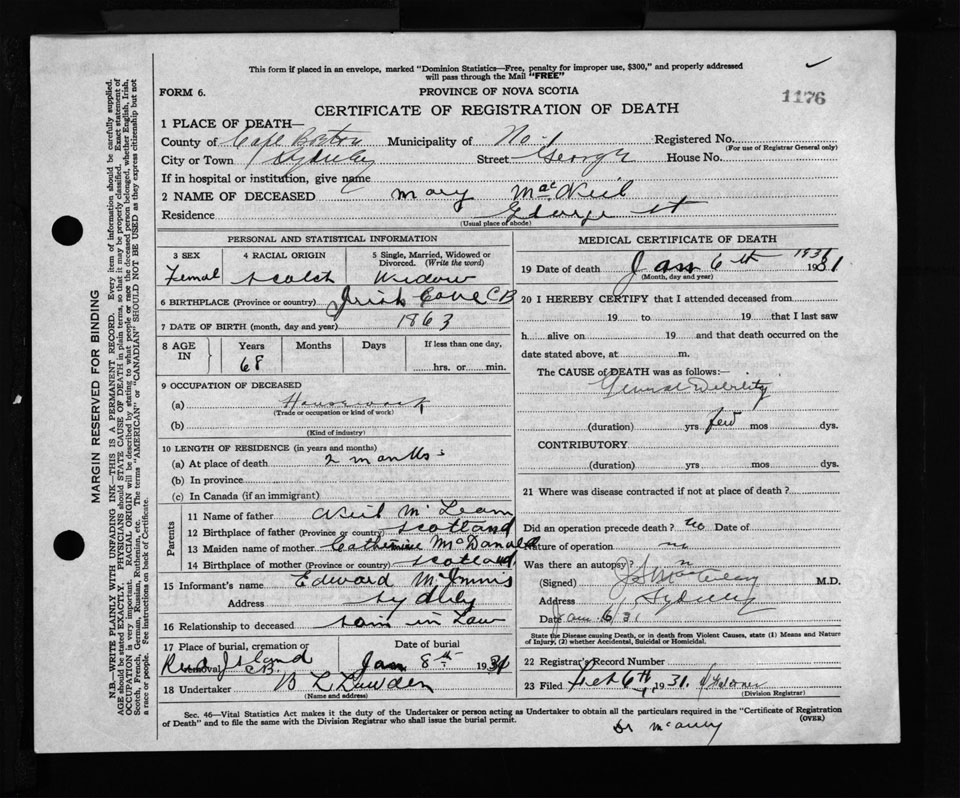 This form if placed in an envelope, marked "Dominion Statistics—Free, penalty for improper use, $300," and properly addressed
will pass through the Mail "FREE"
FORM 6.
PROVINCE OF NOVA SCOTIA
1176
CERTIFICATE OF REGISTRATION OF DEATH
1 PLACE OF DEATH—
County of Cape Breton Municipality of No 1 Registered No.
(For use of Registrar General only)
City or Town Sydney Street George House No.
If in hospital or institution, give name
2 NAME OF DECEASED Mary MacNeil
Residence George St
(Usual place of abode)
PERSONAL AND STATISTICAL INFORMATION
3 SEX 4 RACIAL ORIGIN 5 Single, Married, Widowed or Divorced. (Write the word)
Femal Scotch Widow
6 BIRTHPLACE (Province or country) Irish Cove C B
7 DATE OF BIRTH (month, day and year) 1863
8 AGE IN Years Months Days If less than one day,
68 hrs. or min.
9 OCCUPATION OF DECEASED
(a) Housework
(Trade or occupation or kind of work)
(b)
(Kind of industry)
10 LENGTH OF RESIDENCE (in years and months)
(a) At place of death 2 months
(b) In province
(c) In Canada (if an immigrant)
Parents
11 Name of father Neil McLean
12 Birthplace of father (Province or country) Scotland
13 Maiden name of mother Catherine McDonald
14 Birthplace of mother (Province or country) Scotland
15 Informant's name Edward McInnis
Address Sydney
16 Relationship to deceased son in Law
17 Place of burial, cremation or removal Date of burial
Red Island C.B. Jan 8th 1931
18 Undertaker B L Lawden
(Name and address)
MEDICAL CERTIFICATE OF DEATH
19 Date of death Jan 6th 1931 1931
(Month, day and year)
20 I HEREBY CERTIFY that I attended deceased from
19 to 19 that I last saw
h alive on 19 and that death occurred on the
date stated above, at m.
The CAUSE of DEATH was as follows:—
General Debility
(duration) yrs few mos dys.
CONTRIBUTORY
(duration) yrs mos dys.
21 Where was disease contracted if not at place of death?
Did an operation precede death? no Date of
Nature of operation no
Was there an autopsy? n
(Signed) M.D.
Address Sydney
Date Jan 6/31
State the Disease causing Death, or in death from Violent Causes, state (1) Means and Nature of Injury, (2) whether Accidental, Suicidal or Homicidal.
22 Registrar's Record Number
23 Filed Feb 6th 1931
(Division Registrar)
Sec. 46—Vital Statistics Act makes it the duty of the Undertaker or person acting as Undertaker to obtain all the particulars required in the "Certificate of Registration
of Death" and to file the same with the Division Registrar who shall issue the burial permit.
(OVER)
Dr
MARGIN RESERVED FOR BINDING
N.B.—WRITE PLAINLY WITH UNFADING INK—THIS IS A PERMANENT RECORD. Every item of information should be carefully supplied.
AGE should be stated EXACTLY. PHYSICIANS should STATE CAUSE OF DEATH in plain terms, so that it may be properly classified. Exact statement of
OCCUPATION is very important. RACIAL ORIGIN will be described by stating to what people or race the deceased person belonged, whether English, Irish,
Scotch, French, German, Russian, Ruthenian, etc. The terms "AMERICAN" or "CANADIAN" SHOULD NOT BE USED as they express citizenship but not
a race or people. See instructions on back of Certificate.